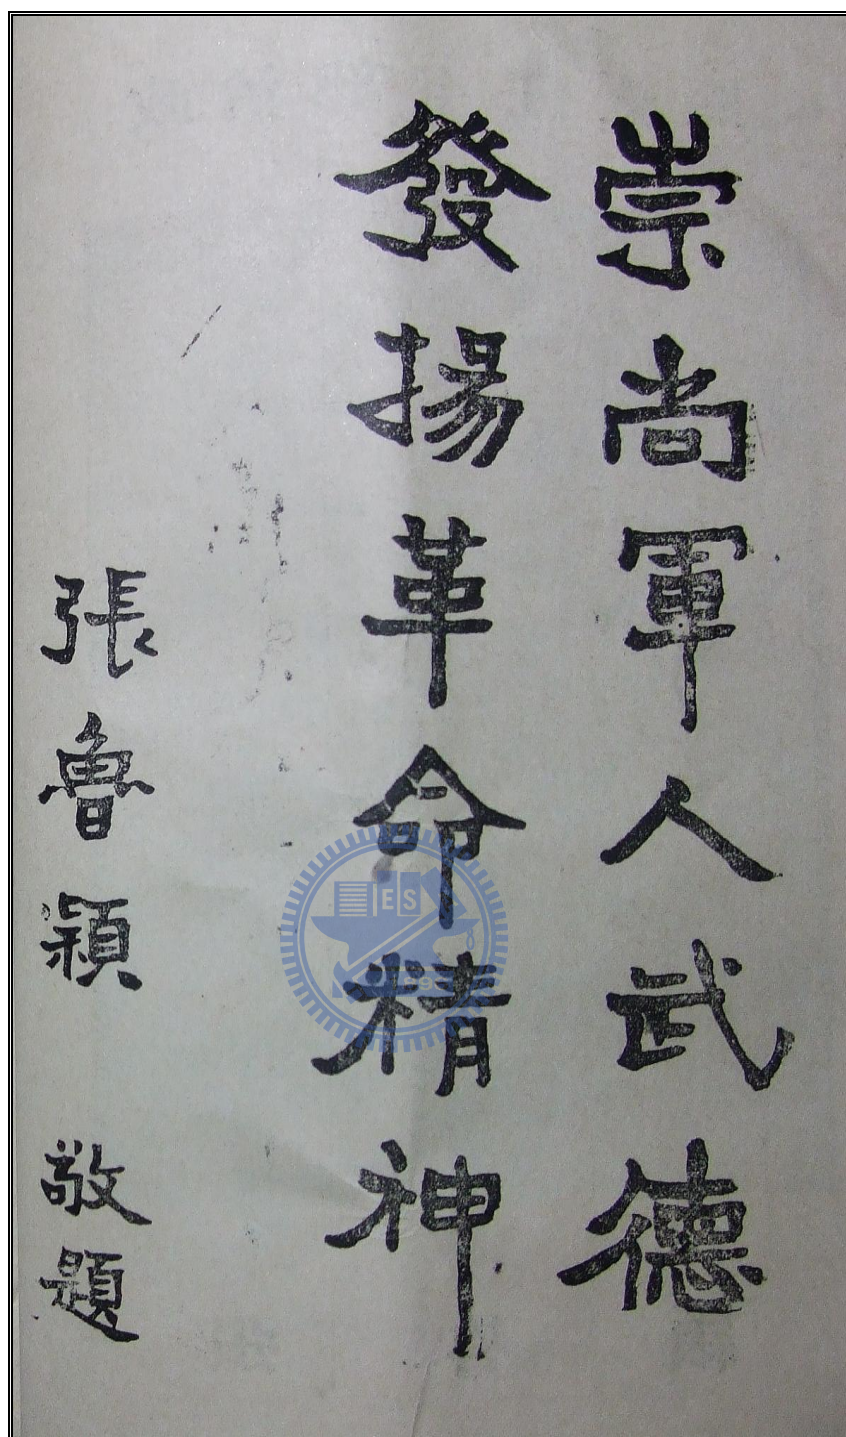 崇尚軍人武德
發揚革命精神
張魯穎 敬題
ES